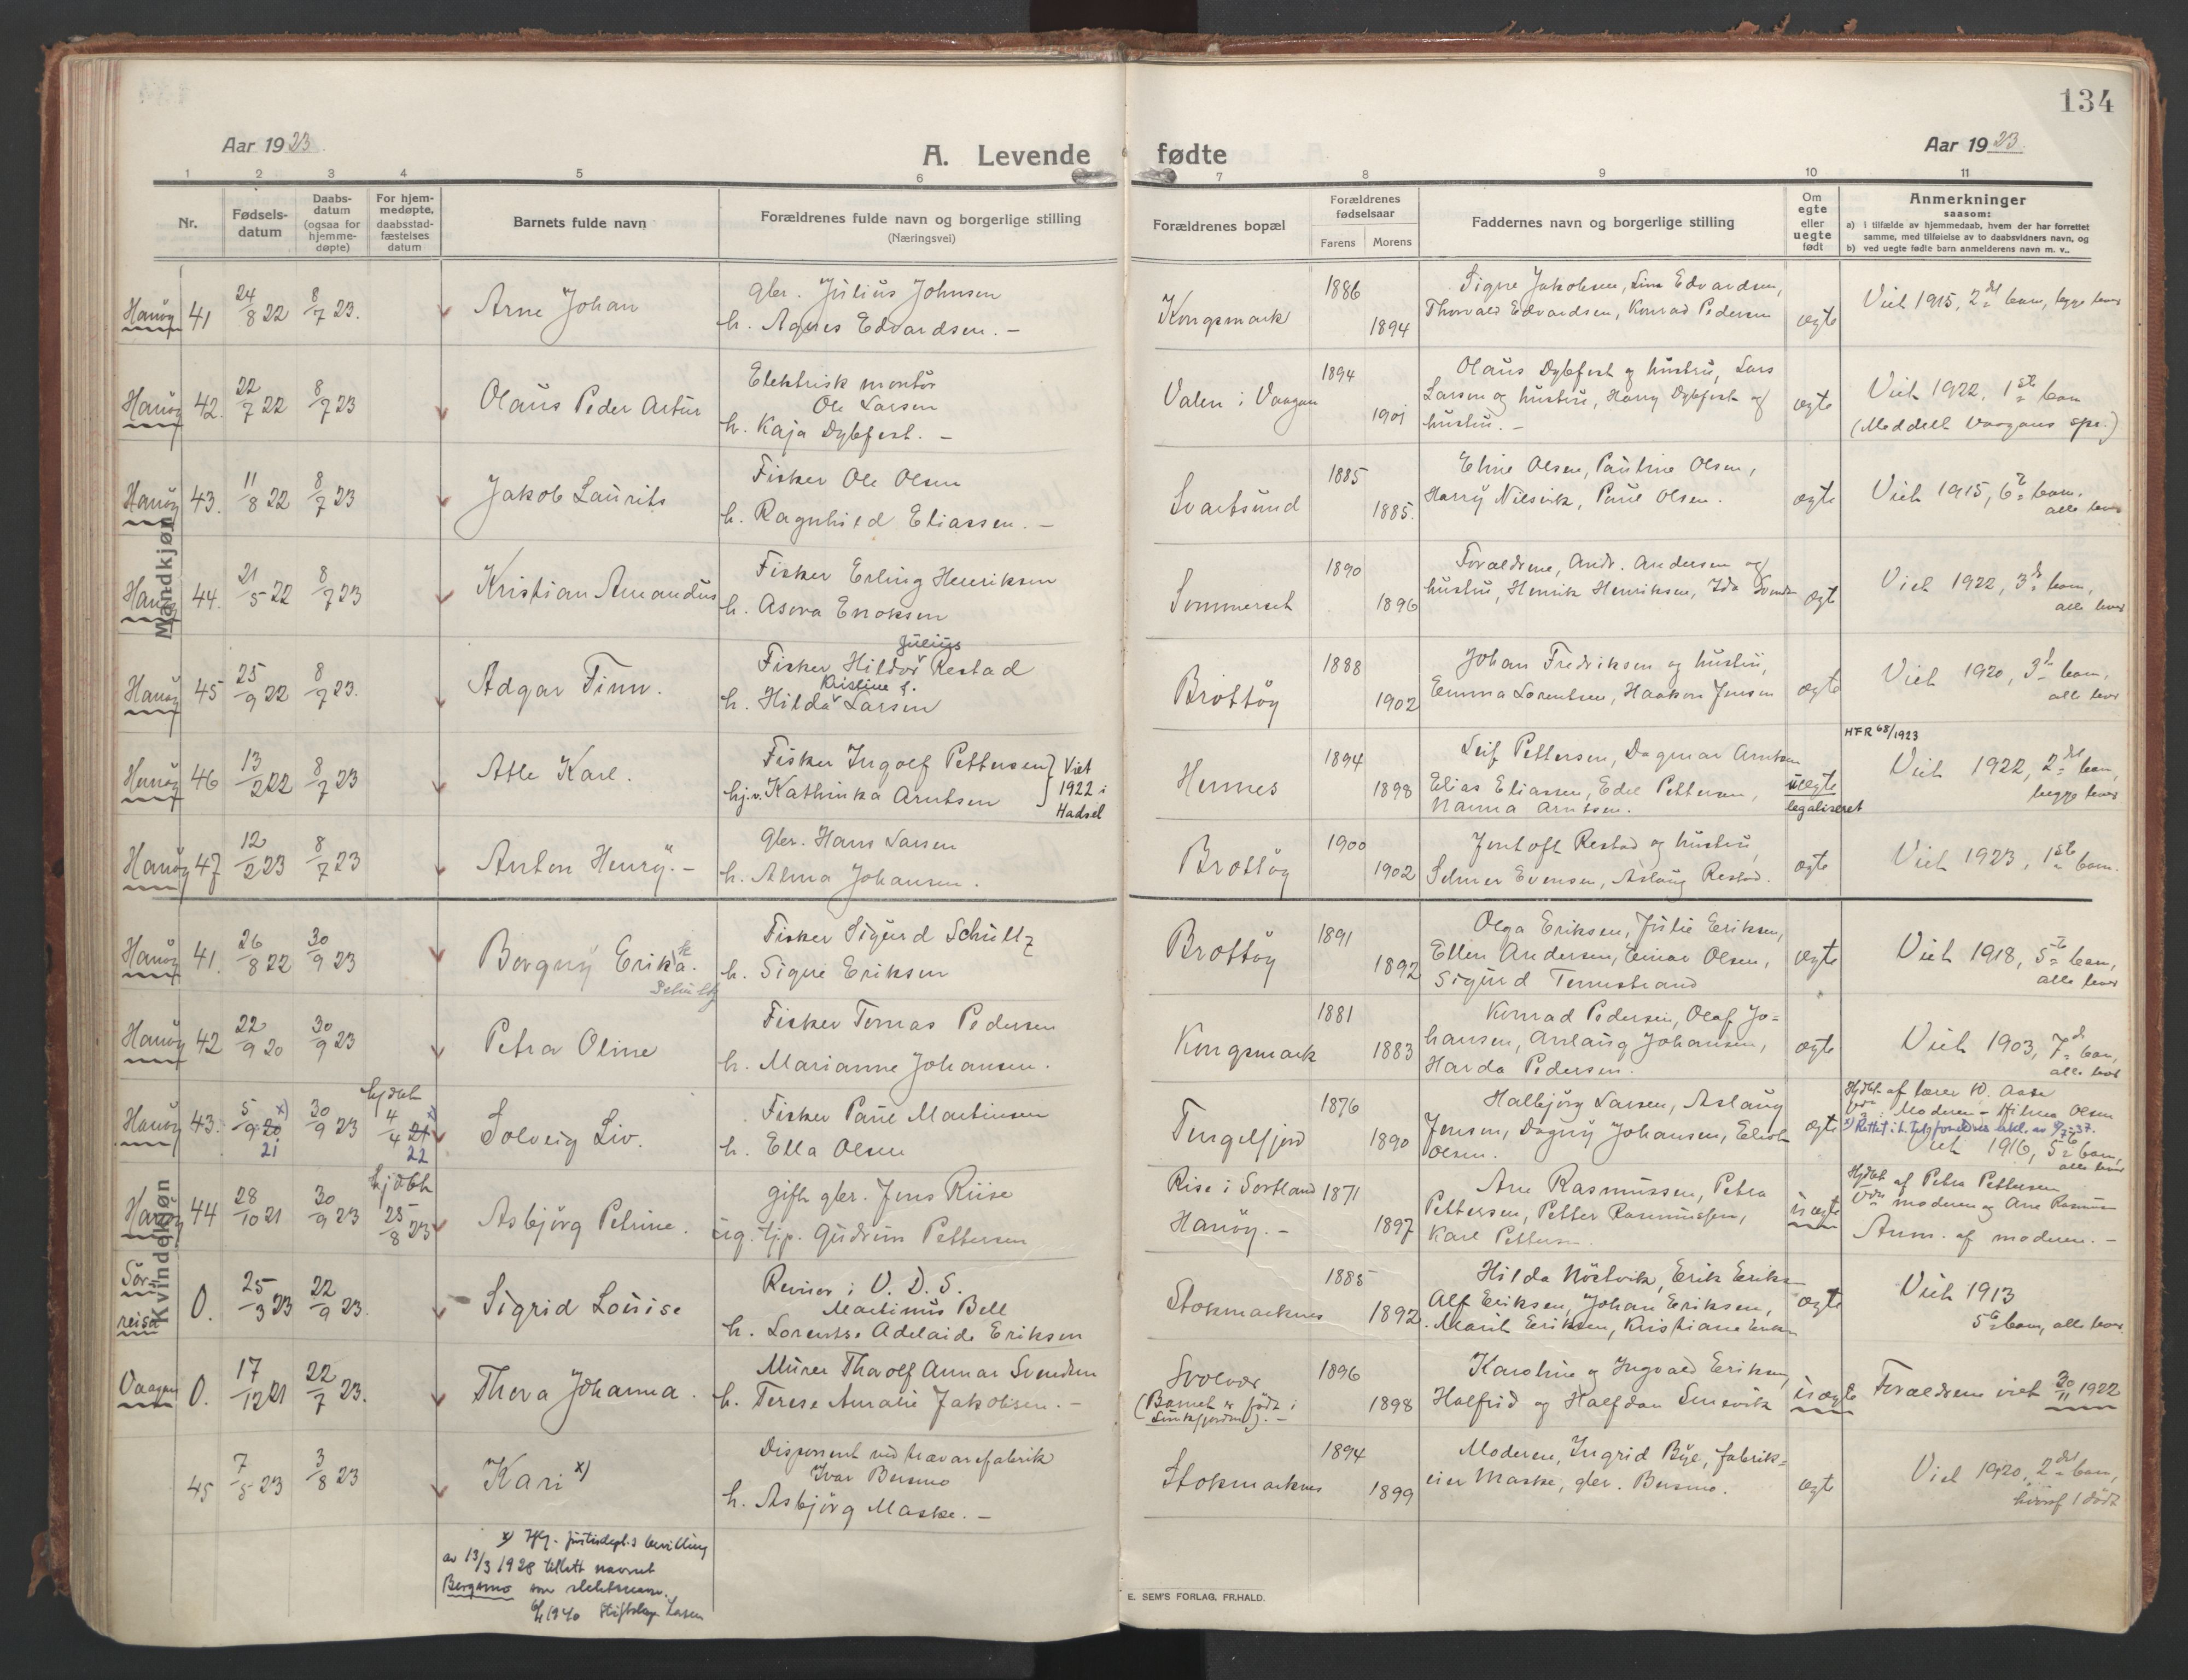 134
Aar 1923.
A. Levende fødte
Aar 1923.
1 2 3 4 5 6 7 8 9 10 11
Nr.
Fødsels-
datum
Daabs-
datum
(ogsaa for
hjemme-
døpte)
For hjem-
medøpte,
daabsstad-
fæstelses
datum
Barnets fulde navn
Forældrenes fulde navn og borgerlige stilling
(Næringsvei)
Forældrenes bopæl
Forældrenes
fødselsaar
Farens Morens
Faddernes navn og borgerlige stilling
Om
egte
eller
uegte
født
Anmerkninger
saasom:
a) i tilfælde av hjemmedaab, hvem der har forrettet
samme, med tilføielse av to daabsvidners navn, og
b) ved uegte fødte barn anmelderens navn m. v..
Mandkjøn
Hanøy 41 24/8 22 8/7 23. Arne Johan
gbr. Julius Johnsen
h. Agnes Edvardsen. -
Kongsmark 1886 1894
Signe Jakobsen, Lina Edvardsen,
Thorvald Edvardsen, Konrad Pedersen
egte
Viet 1915, 2det barn, begge lever
Hanøy 42. 22/7 22 8/7 23 Olaus Peder Artur
Elektrisk montør
Ole Larsen
h. Kaja Dybfest. -
Valen i Vaagan 1894 1901
Olaus Dybfest og hustru, Lars
Larsen og hustru, Harry Dybfest og
hustru. -
egte
Viet 1922, 1ste barn
(Meddelt Vaagans spr.)
Hanøy 43. 11/8 22 8/7 23 Jakob Laurits
Fisker Ole Olsen
h. Ragnhild Eliassen. -
Svartsund 1885 1885.
Eline Olsen, Pauline Olsen,
Harry Nilsvik, Paul Olsen.
egte
Viet 1915, 6te barn,
alle lever
Hanøy 44. 21/5 22 8/7 23 Kristian Amandus
Fisker Erling Henriksen
h. Asora Enoksen
Sommerset 1890 1896
Forældrene, Andr. Andersen og
hustru, Henrik Henriksen, Ida
egte
Viet 1922, 3de barn,
alle lever
Hanøy 45 25/9 22 8/7 23. Adgar Finn.
Julius
Fisker Hildor Restad
Kristine f.
h. Hilda Larsen
Brottøy 1888 1902
Johan Fredriksen og hustru,
Emma Lorentsen, Haakon Jensen
egte
Viet 1920, 3de barn,
alle lever
Hanøy 46 13/2 22 8/7 23 Atle Karl.
Fisker Ingolf Pettersen
hj.v. Kathinka Arntsen
Viet
1922 i
Hadsel
Hennes 1894 1898
Leif Pettersen, Dagmar Arntsen
Elias Eliassen, Edel Pettersen,
Nanna Arntsen.
uegte
legaliseret
HFR 68/1923
Viet 1922, 2det barn,
begge lever
Hanøy 47 12/2 23 8/7 23 Anton Henry. -
gbr. Hans Larsen
h. Alma Johansen.
Brottøy 1900 1902
Jentoft Restad og hustru,
Selmer Evensen, Aslaug Restad.
egte
Viet 1923, 1ste barn.
Kvindekjøn
Hanøy 41. 26/8 22 30/9 23 Borgny Erika.
Schultz
Fisker Sigurd Schultz
h. Signe Eriksen
Brottøy 1891 1892
Olga Eriksen, Julie Eriksen,
Ellen Andersen, Einar Olsen,
Sigurd Tennstrand
egte
Viet 1918, 5te barn,
alle lever
Hanøy 42 22/9 20 30/9 23 Petra Oline
Fisker Tomas Pedersen
h. Marianne Johansen.
Kongsmark 1881 1883
Konrad Pedersen, Olaf Jo=
hansen, Anlaug Johansen,
Harda Pedersen.
egte
Viet 1903, 7de barn,
alle lever
Hanøy 43. 5/9 20 x)
21
30/9 23
hjdøbt
4/4 21 x)
22
Solveig Liv.
Fisker Paul Martinsen
h. Ella Olsen
Tengelfjord 1876 1890
Halbjørg Larsen, Aslaug
Jensen, Dagny Johansen, Eliot
Olsen.
egte
Hjdbt. af lærer K. Aase
Moderen - Hilma Olsen
Viet 1916, 5te barn,
alle lever
Hanøy 44 28/10 21 30/9 23
hjdøbt
25/8 23
Asbjørg Petrine.
gift gbr. Jens Riise
ug. tjp. Gudrun Pettersen
Rise i Sortland
Hanøy. - 1871 1897
Arne Rasmussen, Petra
Pettersen, Petter Rasmussen,
Karl Pettersen
uegte
Hjdbt af Petra Pettersen
Vdn moderen og Arne Rasmussen
Anm. af moderen. -
Sør-
reisa
0. 25/3 23 22/9 23. Sigrid Louise
Revisor i V. D. S.
Martinus Bell
h. Lorentse Adelaide Eriksen
Stokmarknes 1885 1892.
Hilda Nöstvik, Erik Eriksen
Alf Eriksen, Johan Eriksen,
Marit Eriksen, Kristiane Eriksen
egte
Viet 1913
5te barn, alle lever.
Vaagan 0. 17/12 21 22/7 23. Thora Johanna.
Murer Tharolf Annar Svendsen
h. Terese Amalie Jakobsen. -
Svolvær
(Barnet er født i
1896 1898
Karoline og Ingvald Eriksen
Halfrid og Halfdan
uegte
Forældrene viet 30/11 1922
45 7/5 23 3/8 23 Kari x)
Disponent ved trævarefabrik
Ivar Bersmo
h. Asbjørg Maske. -
Stokmarknes 1894 1899
Moderen, Ingrid Bye, fabrik=
eier Maske, gbr. Bersmo.
egte
Viet 1920, 2det barn,
hvoraf 1 dødt
x) Ifg. justisdept.s bevilling
av 13/3 1928 tillatt navnet
Bergsmo som slektsnavn.
1940 Stiftskap. Larsen
E. SEM'S FORLAG, FR.HALD.